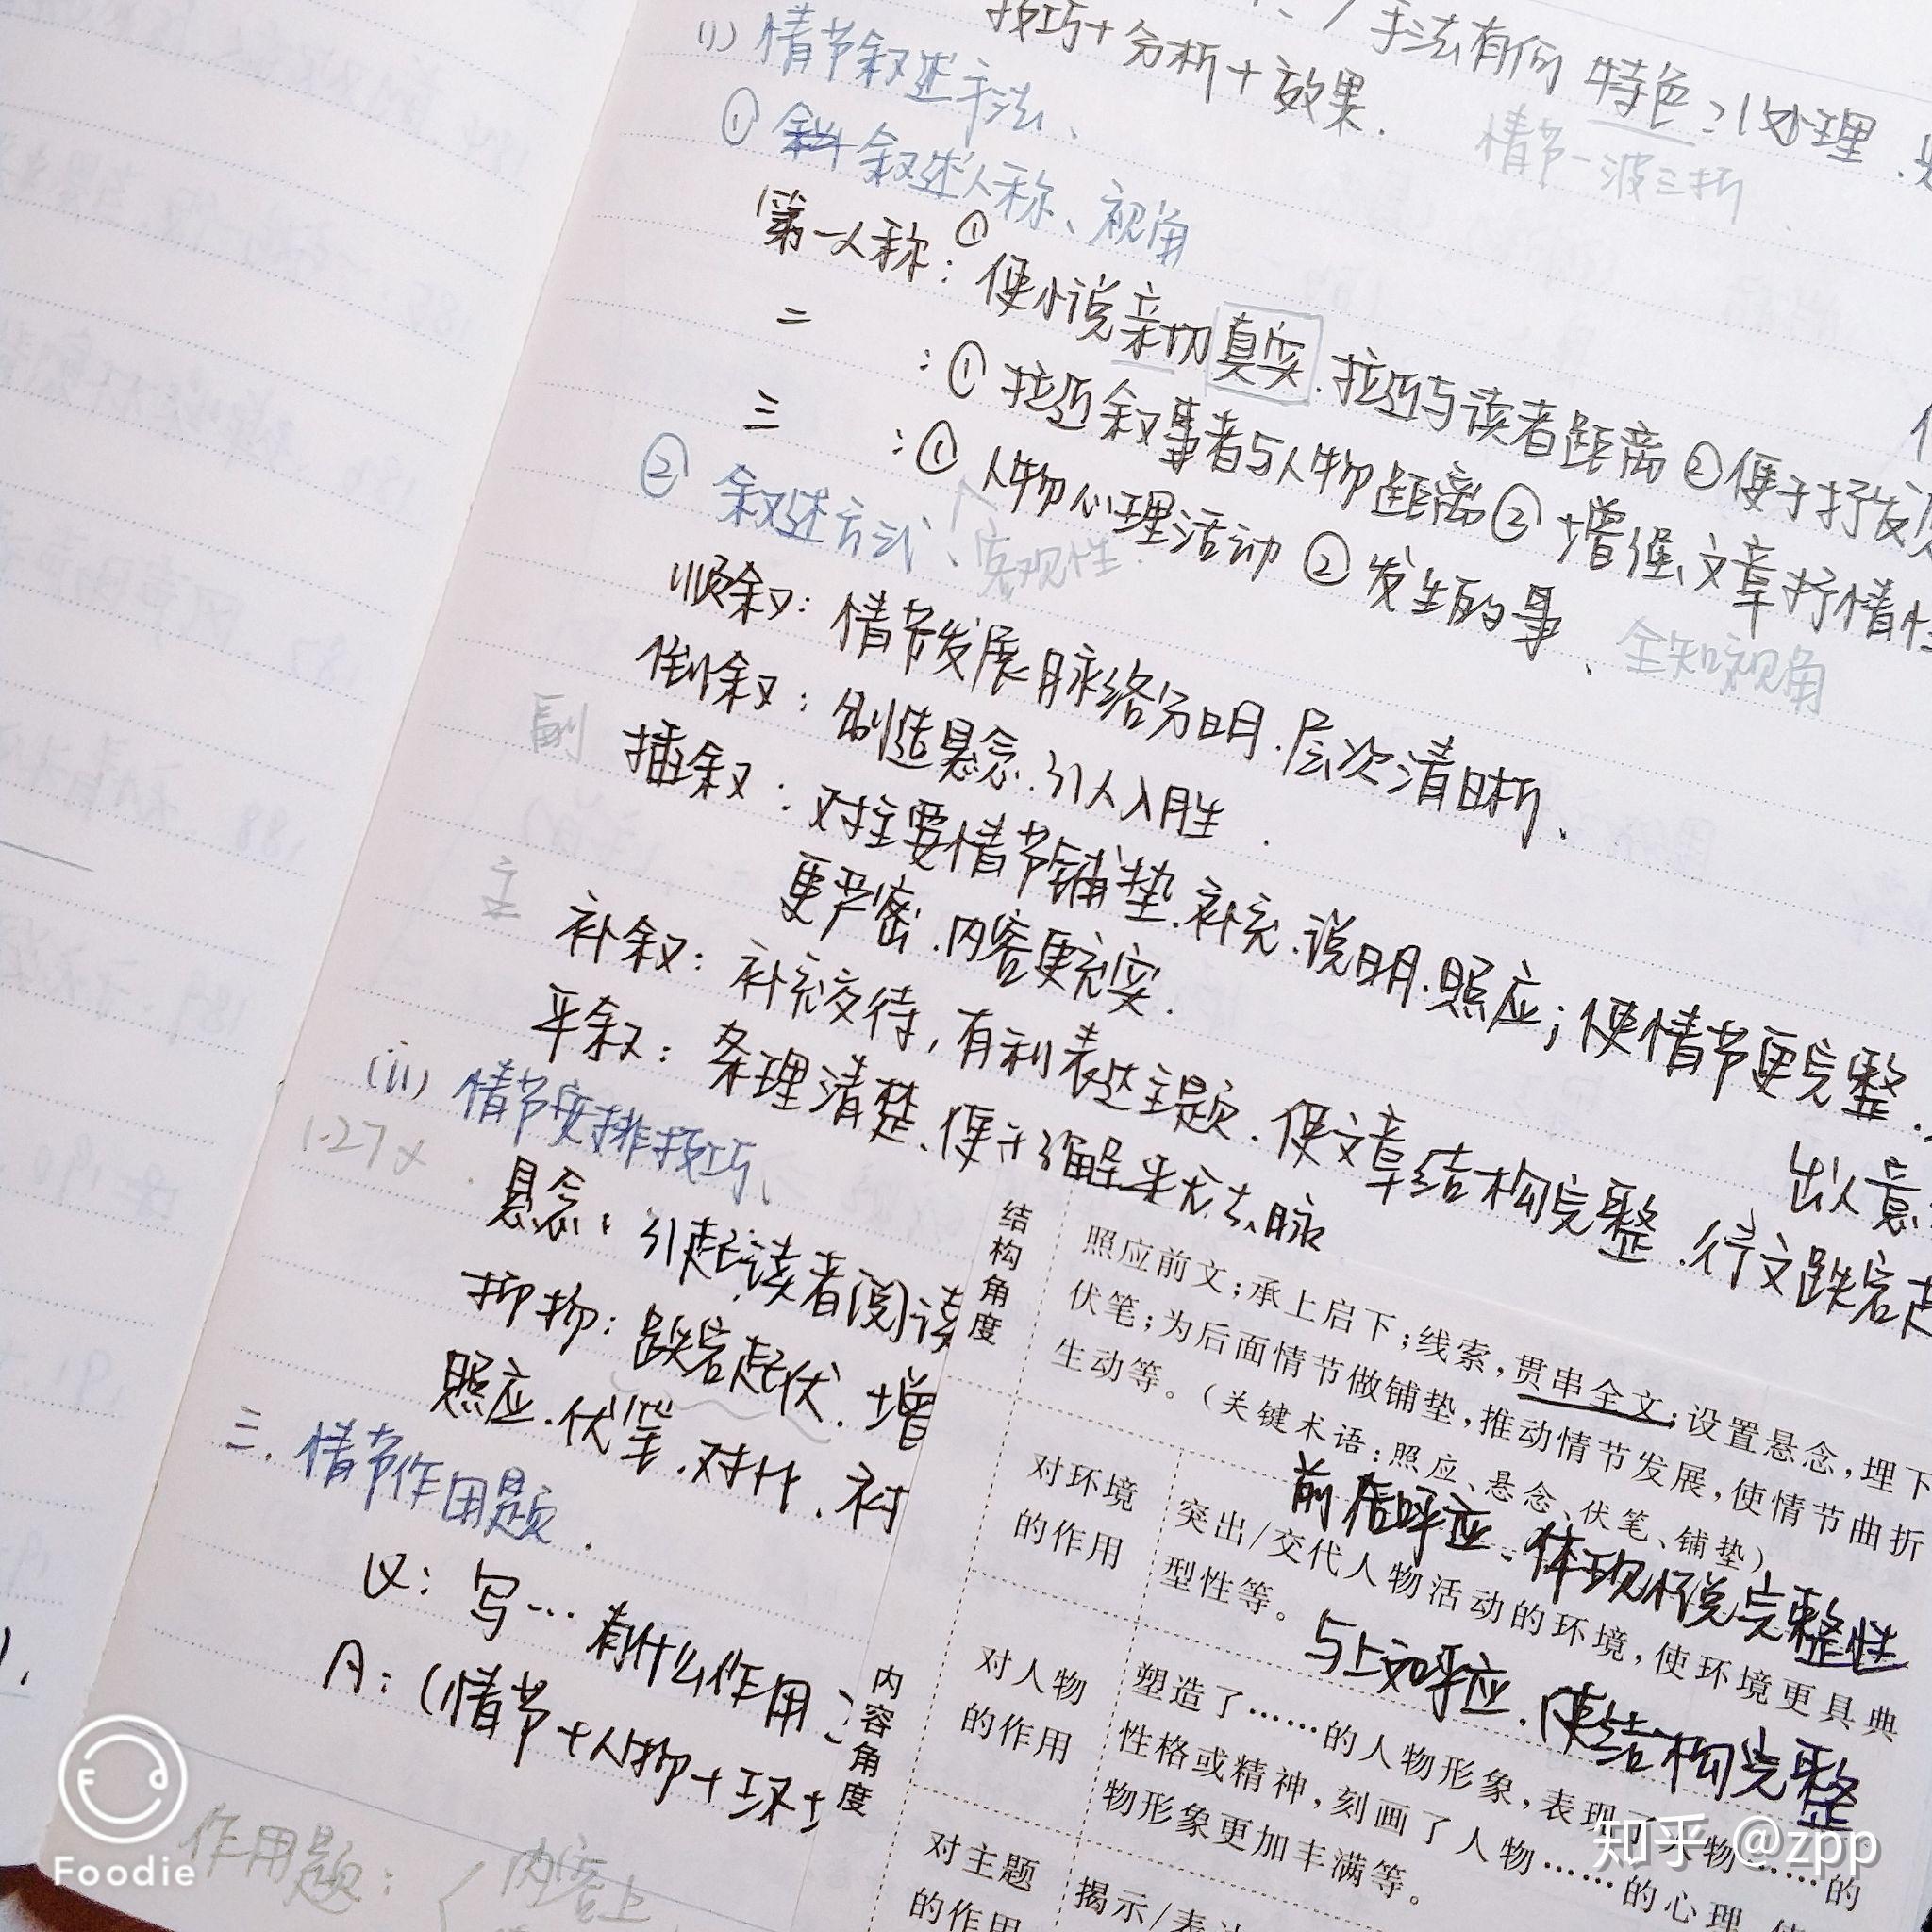 手法有何特色?
技巧+分析+效果.
情节一波三折
(i) 情节叙述手法、
① 叙述人称、视角
第一人称: ① 使小说亲切真实. 拉近与读者距离 ② 便于抒发
二 : ① 拉近叙事者与人物距离 ② 增强文章抒情性
三 : ① 人物心理活动 ② 发生的事、 全知视角
② 叙述方式、 客观性.
顺叙: 情节发展脉络分明. 层次清晰、
倒叙: 制造悬念. 引人入胜.
副 插叙: 对主要情节铺垫. 补充. 说明. 照应; 使情节更完整.
更严密. 内容更充实.
主 补叙: 补充交待, 有利表达主题. 使文章结构完整. 行文跌宕起
平叙: 条理清楚、便于了解来龙去脉
出人意
(ii) 情节安排技巧、
1.27
悬念: 引起读者阅读
抑扬: 跌宕起伏. 增
照应. 伏笔. 对比. 衬
三. 情节作用题.
Q: 写…有什么作用?
A: (情节+人物+环境
作用题: { 内容上
结构角度
照应前文;承上启下;线索,贯串全文;设置悬念,埋下
伏笔;为后面情节做铺垫,推动情节发展,使情节曲折
生动等。(关键术语:照应、悬念、伏笔、铺垫)
前后呼应、体现小说完整性
内容角度
对环境的作用
突出/交代人物活动的环境,使环境更具典
型性等。
与上文呼应. 使结构完整
对人物的作用
塑造了……的人物形象,表现了人物……的
性格或精神,刻画了人物……的心理,使
物形象更加丰满等。
对主题的作用
揭示/表
Foodie
知乎 @zpp